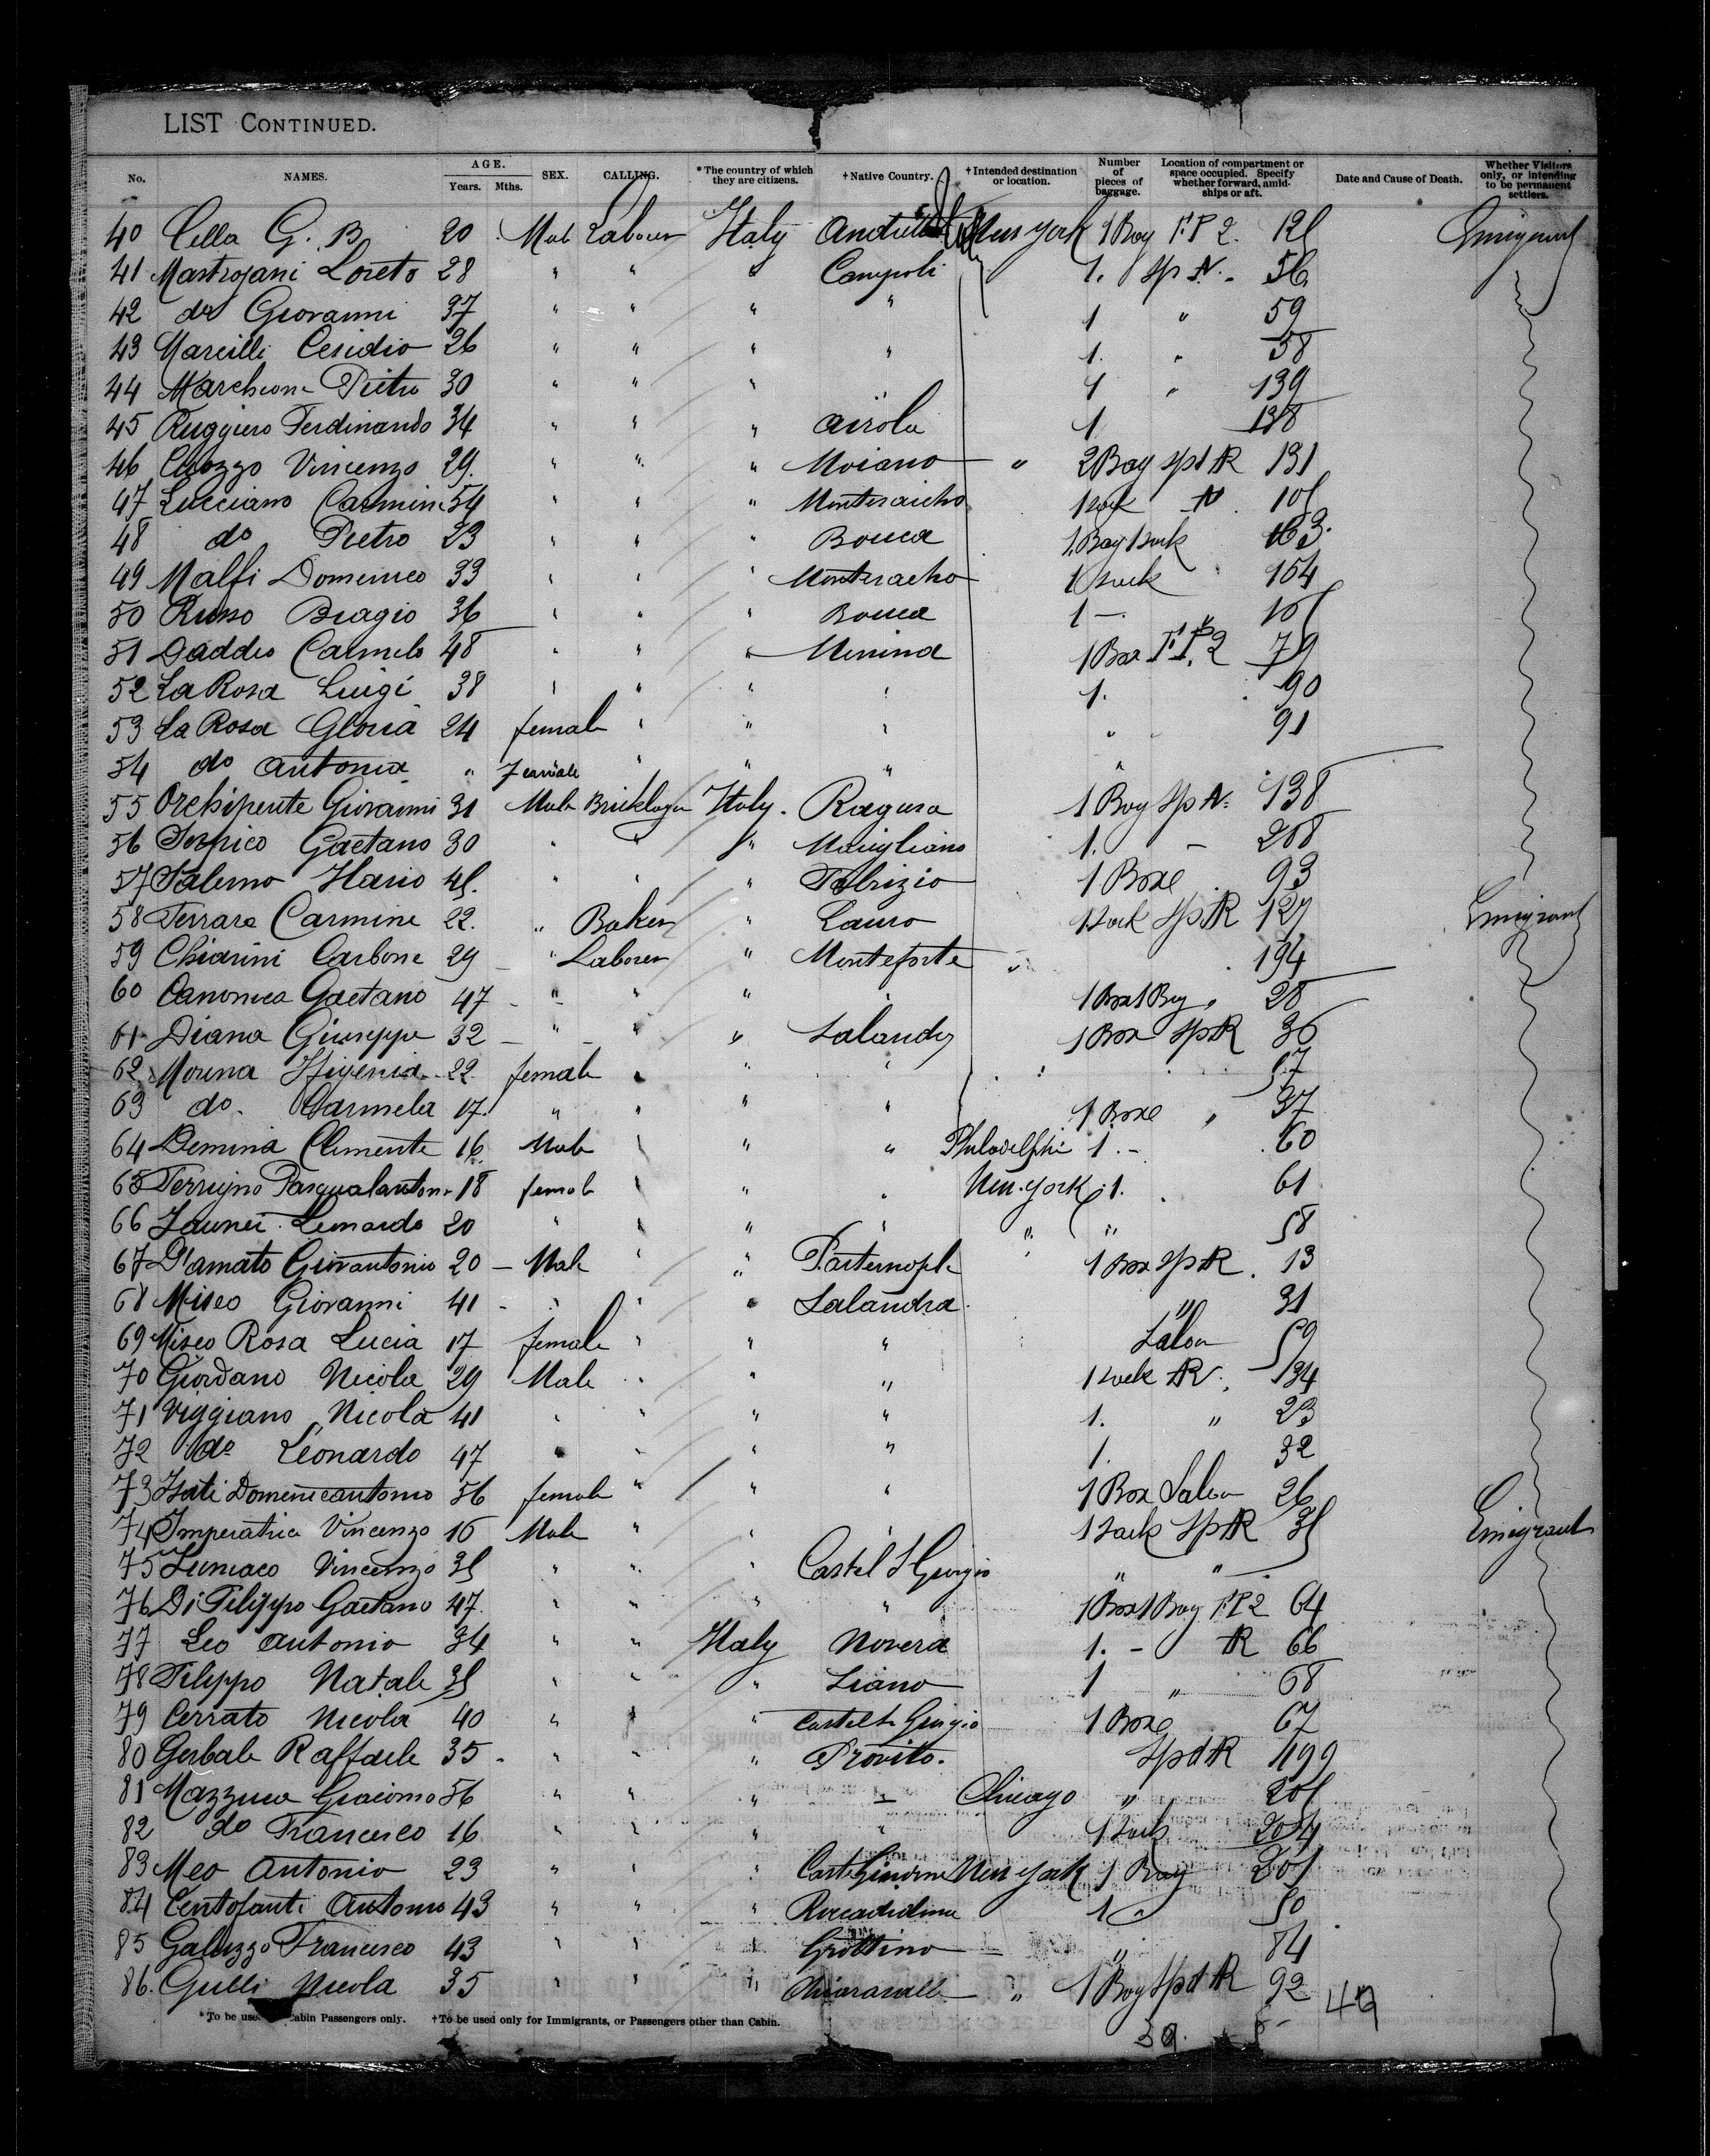 LIST CONTINUED.
No. NAMES. AGE. Years. Mths. SEX. CALLING. * The country of which they are citizens. † Native Country. † Intended destination or location. Number of pieces of baggage. Location of compartment or space occupied. Specify whether forward, amidships or aft. Date and Cause of Death. Whether Visitors only, or intending to be permanent settlers.
40 Cella G. B. 20 Male Laborer Italy New York 1 Bag F.P 2. Emigrant
41 Mastrojani Loreto 28 " " " Campoli 1. Sp N. 56
42 do Giovanni 37 " " " " 1 " 59
43 Marcilli Cesidio 26 " " " " 1. " 58
44 Marchione Pietro 30 " " " " 1 " 139
45 Ruggiero Ferdinando 34 " " " Airola 1 138
46 Cuozzo Vincenzo 29. " " " Moiano " 2 Bag Spd R 131
47 Lucciano Carmine 54 " " " 1 sack N.
48 do Pietro 23 " " " Bonea 1 Bag 1 Sack 163.
49 Malfi Domenico 33 " " " 1 Sack 154
50 Russo Biagio 36 " " " Bonea 1 -
51 Daddeo Carmelo 48 " " " Messina 1 Box F.P. 2 79
52 La Rosa Luigi 38 " " " " 1. 90
53 La Rosa Gloria 24 female " " " " 91
54 do Antonia " Female " " " "
55 Orchipente Giovanni 31 Male Bricklayer Italy. Ragusa 1 Bag Sp N. 138
56 Sorpico Gaetano 30 " " " Marigliano 1. - 268
57 Salerno Ilario 45. " " " Fabrizio 1 Box 93
58 Ferrara Carmine 22. " Baker " Lauro 1 Sack Spd R 127 Emigrant
59 Chiarini Carbone 29 " Laborer " Monteforte " 194
60 Canonica Gaetano 47 " " " " 1 Box 1 Bag " 28
61 Diana Giuseppe 32 " " " 1 Box Spd R 36
62 Morena Ifigenia 22 female " " "
63 do. Carmela 17. " " " " 1 Boxe " 37
64 Demina Clemente 16. Male " " " Philadelphi 1. - 60
65 Ferrigno Pasqualanton 18 female " " New York 1. 61
66 Leonardo 20 " " " " " " 58
67 D'amato Giovantonio 20 - Male " " 1 Box Spd R. 13
68 Miseo Giovanni 41 - " " " Salandra. " 31
69 Miseo Rosa Lucia 17 female " " " Saloon 59
70 Giordano Nicola 29 Male " " " 1 sack R 134
71 Viggiano Nicola 41 " " " " 1. " 23
72 do Leonardo 47 " " " " 1. 32
73 Domenicantonio 56 female " " " 1 Box Saloon 26
74 Imperatrice Vincenzo 16 Male " " " 1 Sack Spd R 35 Emigrant
75 Vincenzo 35 " " " Castel S Giorgio " "
76 Di Filippo Gaetano 47. " " " " 1 Box 1 Bag F.P 2 64
77 Leo Antonio 34 " " Italy Novera 1. - R 66
78 Filippo Natale 35 " " " Liano 1 " 68
79 Cerrato Nicola 40 " " " Castel S Giorgio 1 Boxe 67
80 Gerbale Raffaele 35 - " " " Provito. Spd R 199
81 Mazzuca Giacomo 56 " " " - Chicago "
82 do Francesco 16 " " " " 1 Sack 204
83 Meo Antonio 23 " " " New York 1 Bag
84 Centofanti Antonio 43 " " " 1 " 50
85 Galuzzo Francesco 43 " " " Grottino " 84
86. Gulli Nicola 35 " " " Chiaravalle " 1 Bag Spd R 92
* To be use Cabin Passengers only. † To be used only for Immigrants, or Passengers other than Cabin.